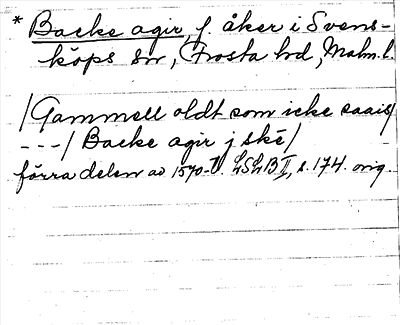 * Backe agir, f. åker i Svens-
köps sn, Frosta hd, Malm.l.
/Gammell oldt som icke saais/
---/ Backe agir j skè/
förra delen av 1570-t. LSLB II, s. 174. orig.